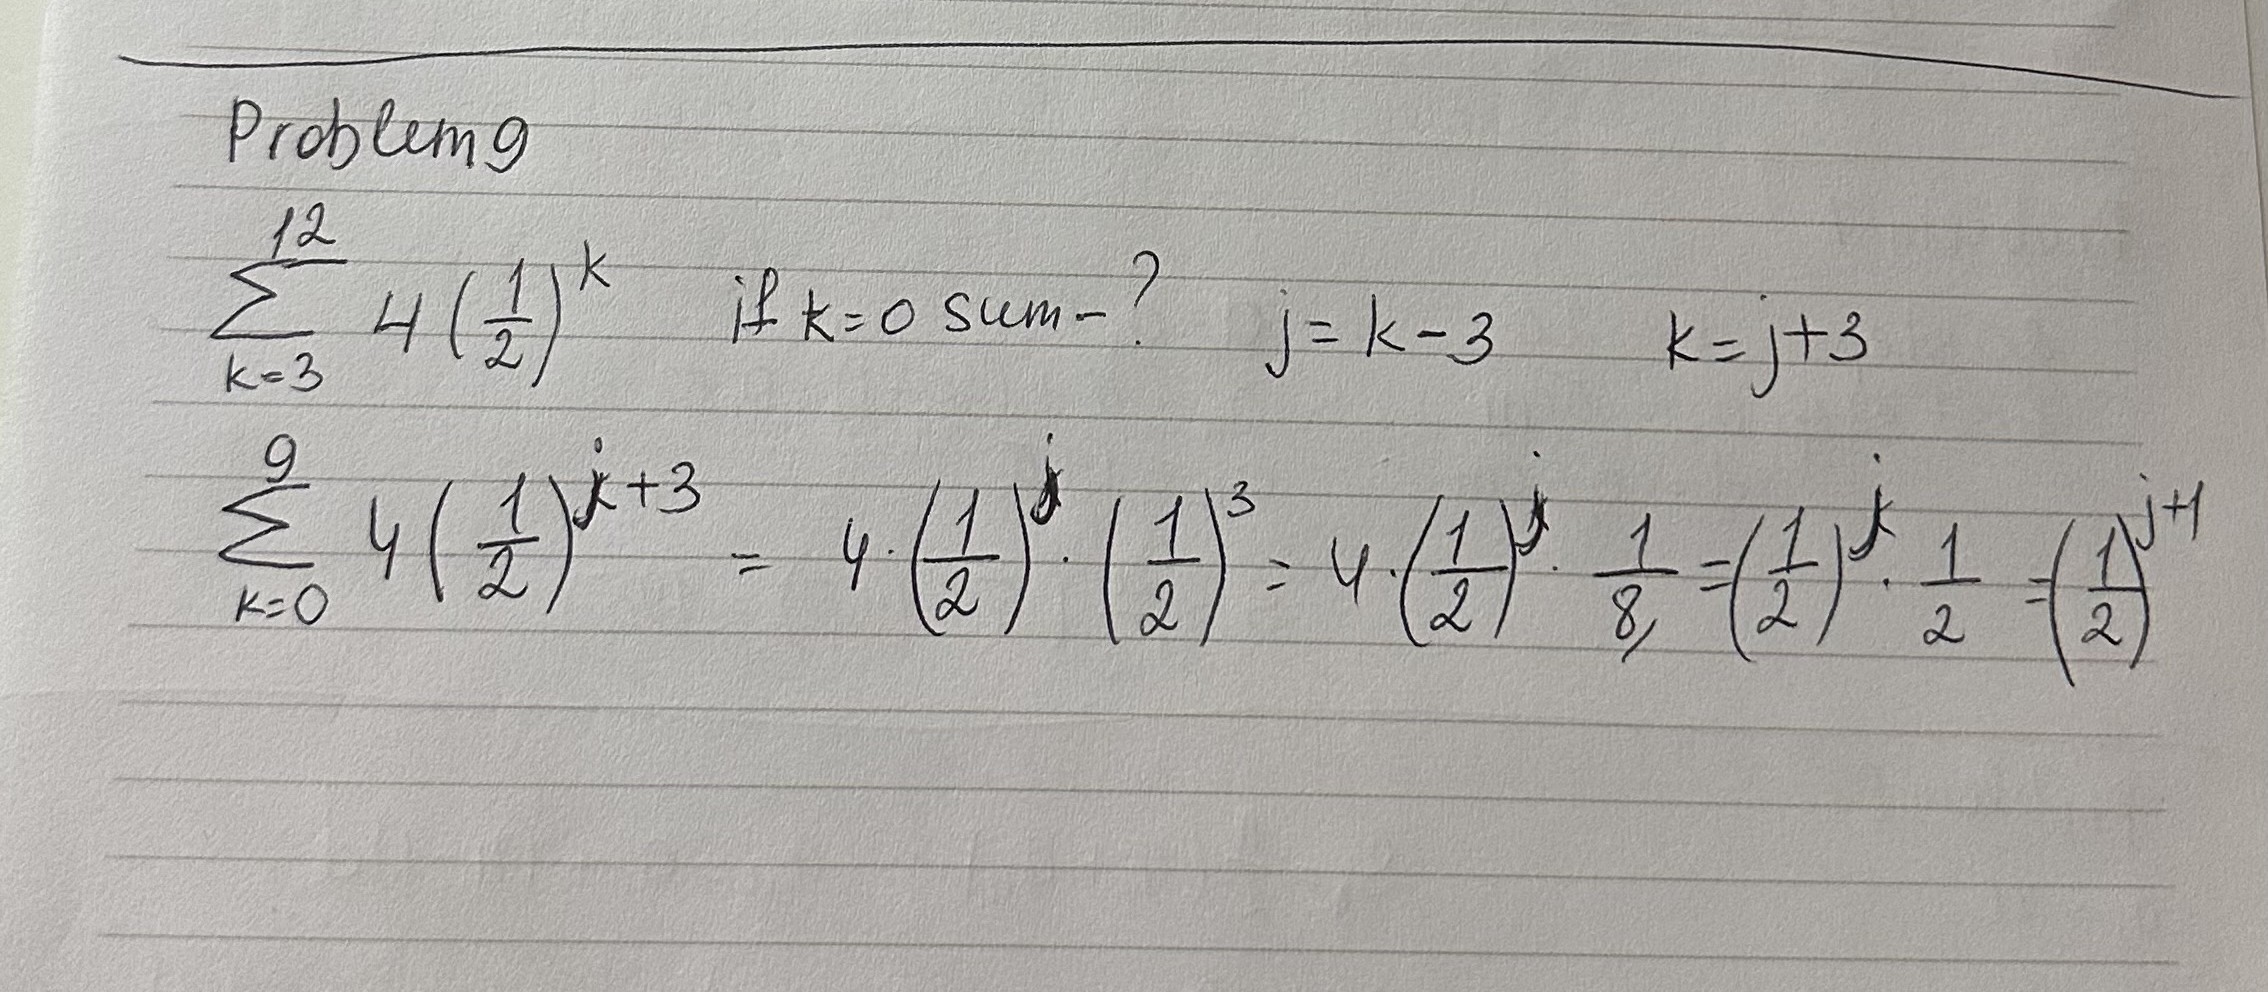 Problem 9
12 ∑ k=3 4(1/2)^k if k=0 sum-? j=k-3 k=j+3
9 ∑ k=0 4(1/2)^(j+3) = 4·(1/2)^j·(1/2)^3 = 4·(1/2)^j·1/8, =(1/2)^j·1/2 =(1/2)^(j+1)